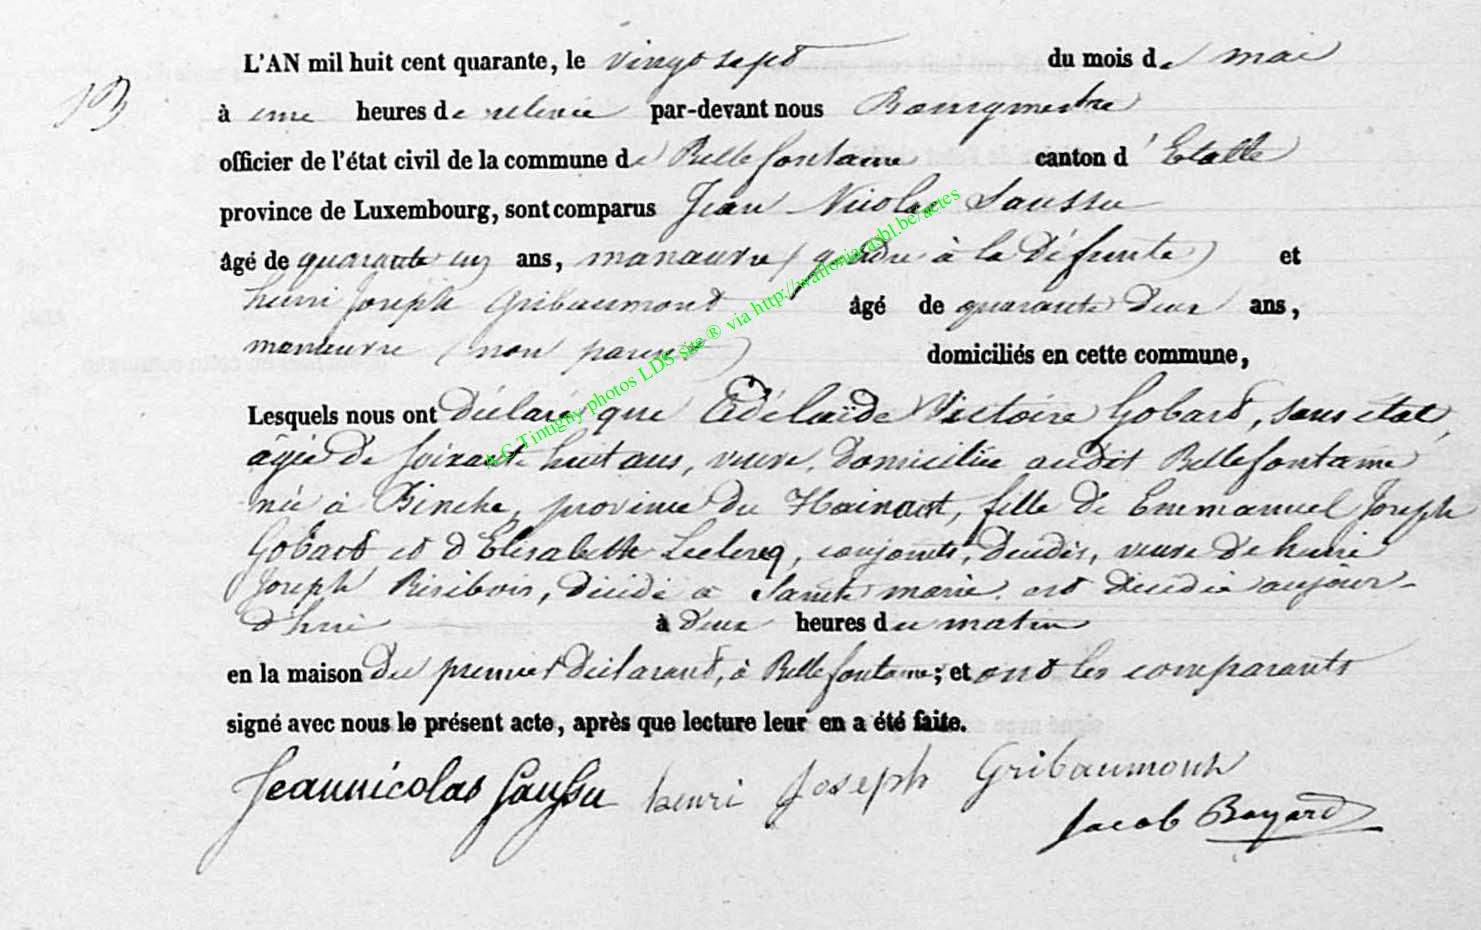 L'AN mil huit cent quarante, le vingt sept du mois de mai
à une heures de relevée par-devant nous Bourgmestre
officier de l'état civil de la commune de Bellefontaine canton d'Etalle
province de Luxembourg, sont comparus Jean Nicolas Saussu
âgé de quarante un ans, manœuvre (gendre à la défunte) et
henri Joseph Gribaumont âgé de quarante deux ans,
manœuvre (non parent) domiciliés en cette commune,
Lesquels nous ont déclaré que Adélaïde Victoire Gobard, sans état,
âgée de soixante huit ans, veuve, domiciliée audit Bellefontaine
née à Binche, province du Hainaut, fille de Emmanuel Joseph
Gobard et d'Elisabeth Leclercq, conjoints, décédés, veuve de henri
Joseph décédé à Sainte marie, est décédée aujour-
d'hui à deux heures du matin
en la maison du premier déclarant, à Bellefontaine; et ont les comparants
signé avec nous le présent acte, après que lecture leur en a été faite.
Jeannicolas Saussu henri Joseph Gribaumont
Jacob Bayard
A.G Tintigny photos LDS site ® via http://walloniacasbl.be/actes